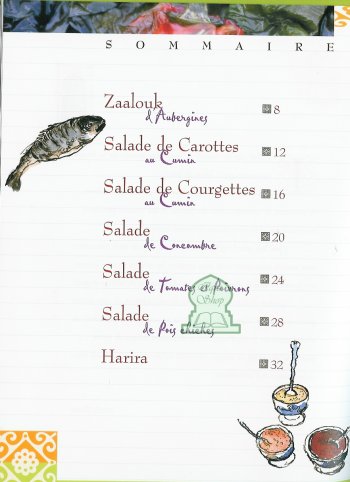 SOMMAIRE
Zaalouk
d'Aubergines
8
Salade de Carottes
au Cumin
12
Salade de Courgettes
au Cumin
16
Salade
de Concombre
20
Salade
de Tomates et Poivrons
24
Salade
de Pois chiches
28
Harira
32
Shop